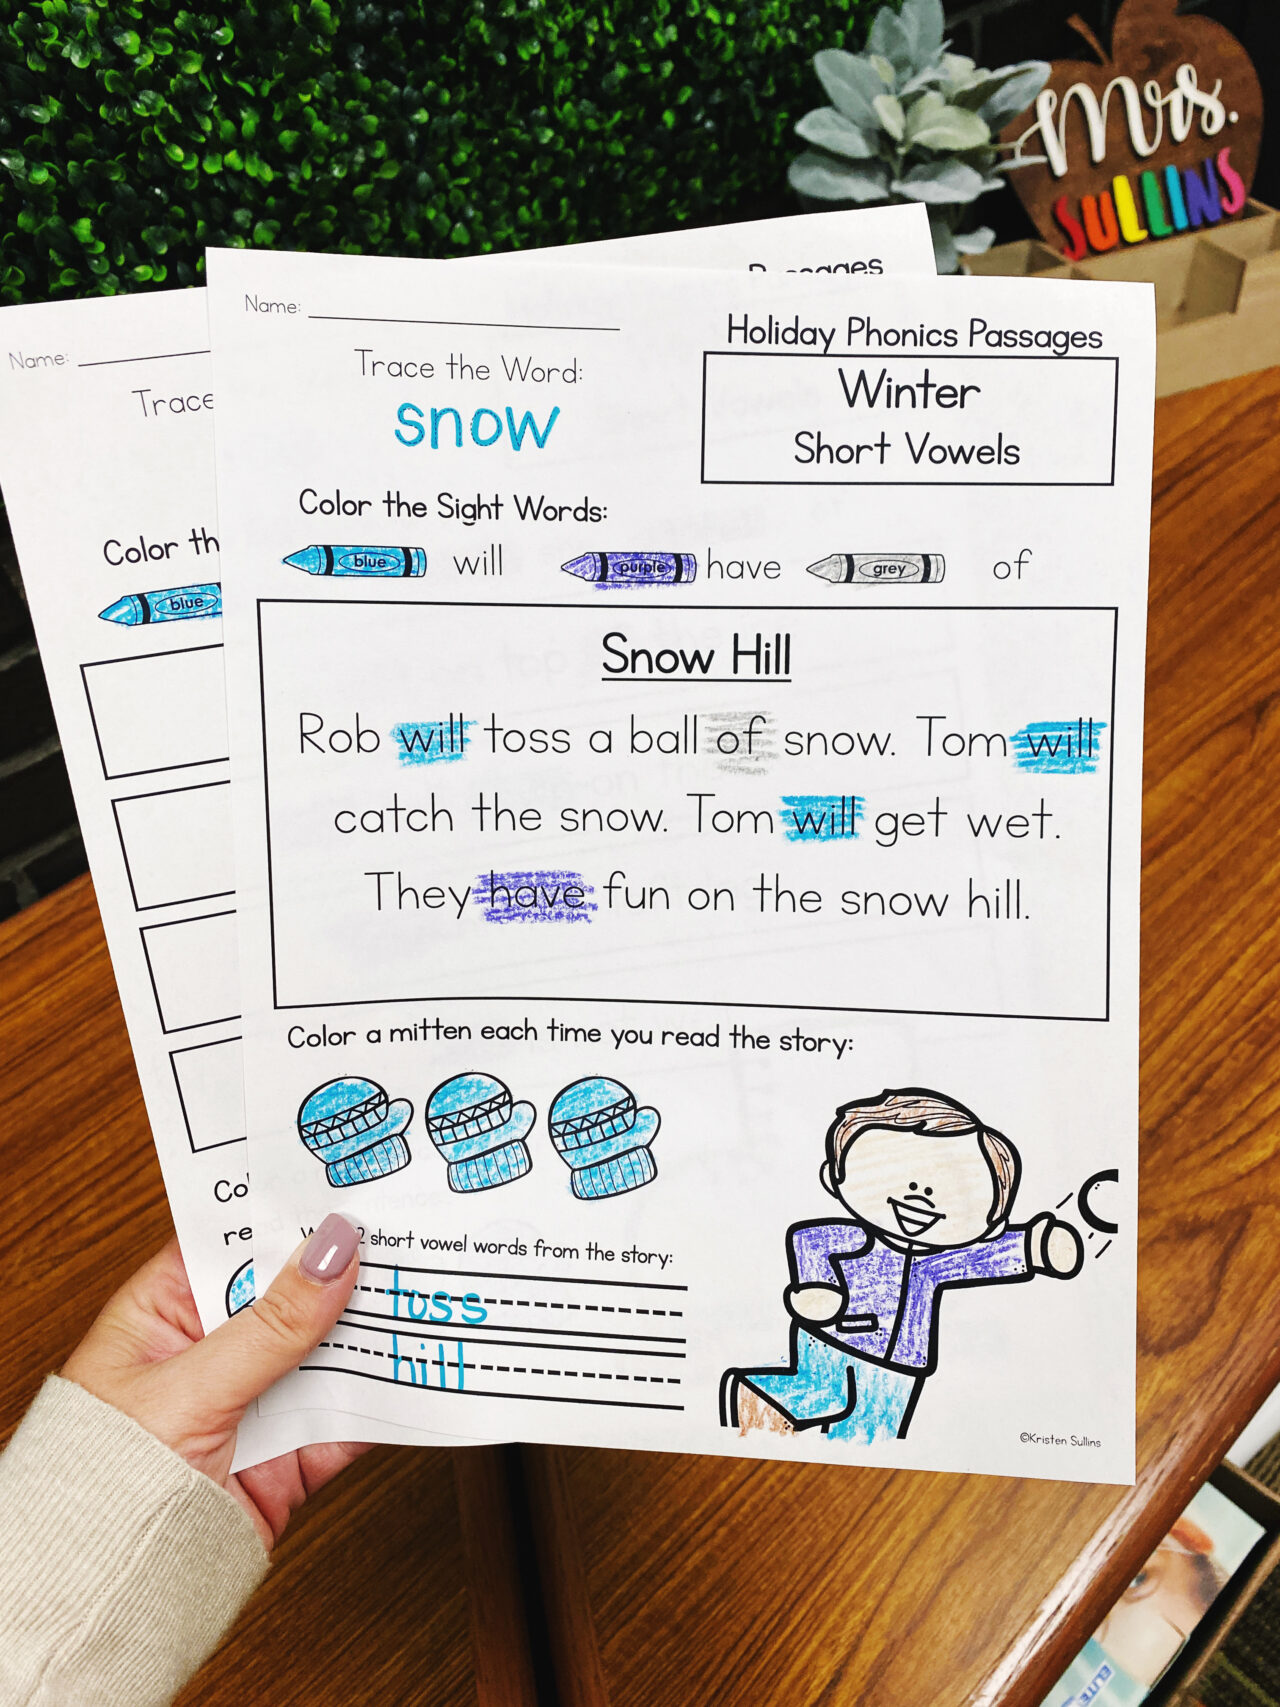 Mrs.
SULLINS
Passages
Name:
Trace
Color th
blue
Co
re
Name:
Holiday Phonics Passages
Trace the Word:
snow
Winter
Short Vowels
Color the Sight Words:
blue will purple have grey of
Snow Hill
Rob will toss a ball of snow. Tom will
catch the snow. Tom will get wet.
They have fun on the snow hill.
Color a mitten each time you read the story:
2 short vowel words from the story:
toss
hill
©Kristen Sullins
ELITE